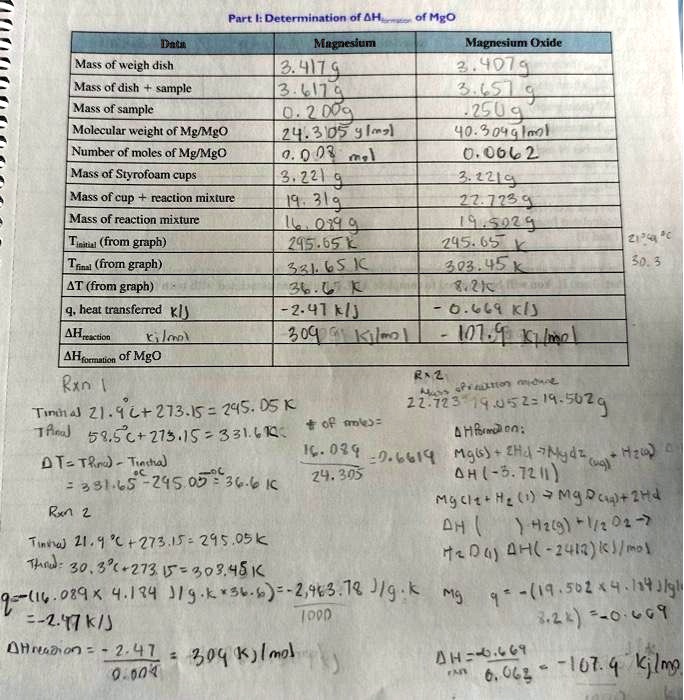 Part I: Determination of ΔHformation of MgO
Data Magnesium Magnesium Oxide
Mass of weigh dish 3.417g 3.407g
Mass of dish + sample 3.617g 3.657g
Mass of sample 0.200g .250g
Molecular weight of Mg/MgO 24.3105 g/mol 40.304g/mol
Number of moles of Mg/MgO 0.008 mol 0.0062
Mass of Styrofoam cups 3.221 g 3.221g
Mass of cup + reaction mixture 19.31g 22.723g
Mass of reaction mixture 16.089g 19.502g
Tinitial (from graph) 295.05 K 295.05 K 21.9 °C
Tfinal (from graph) 331.65 K 303.45 K 30.3
ΔT (from graph) 36.6 K 8.2K
q, heat transferred KJ -2.47 KJ -0.669 KJ
ΔHreaction Kj/mol 309 Kj/mol -107.9 Kj/mol
ΔHformation of MgO
Rxn 1
Tinitial 21.9°C + 273.15 = 295.05 K
TFinal 58.5°C + 273.15 = 331.6
ΔT = TFinal - Tinitial
= 331.65 - 295.05 = 36.6 K
Rxn 2
Tinitial 21.9 °C + 273.15 = 295.05K
TFinal: 30.3°C + 273.15 = 303.45K
q = -(16.089 x 4.184 J/g.K x 36.6) = -2,463.78 J/g.K
1000
= -2.47 KJ
ΔHreaction = -2.47 = 309 KJ/mol
0.008
# of moles =
16.089 = 0.6619
24.305
Rx 2
Mass of reaction mixture
22.723 - = 19.502g
ΔHformation:
Mg(s) + 2Hcl → + H2(g)
ΔH (-3.7211)
Mgcl2 + H2 (l) → MgO(aq) + 2Hcl
ΔH ( ) H2(g) + 1/2 O2 →
H2O(l) ΔH(-2412)KJ/mol
Mg q = -(19.502 x 4.184 J/g
8.2K) = -0.669
ΔH rxn = -0.669 = -107.9 Kj/mol
0.062